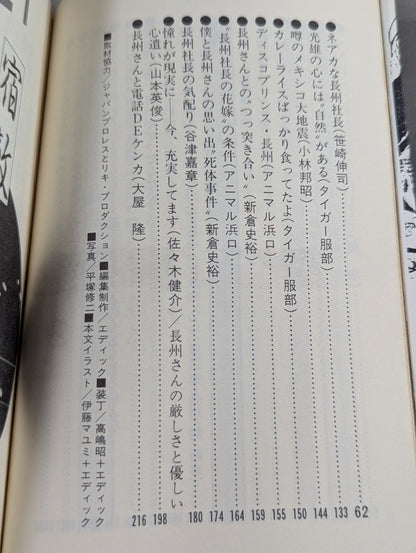 ●ネアカな長州社長(笹崎伸司)……62
●光雄の心には〝自然〟がある(タイガー服部)……133
●噂のメキシコ大地震(小林邦昭)……144
●カレーライスばっかり食ってたよ(タイガー服部)……150
●ディスコプリンス・長州(アニマル浜口)……155
●長州さんとの〝つっ突き合い〟(新倉史裕)……159
●〝長州社長の花嫁〟の条件(アニマル浜口)……164
●僕と長州さんの思い出〝死体事件〟(新倉史裕)……174
●長州社長の気配り(谷津嘉章)……180
●憧れが現実に——今、充実してます(佐々木健介)/長州さんの厳しさと優しい
心遣い(山本英俊)……198
●長州さんと電話DEケンカ(大屋 隆)……216
■取材協力/ジャパンプロレスとリキ・プロダクション■編集制作/エディック■装丁/高嶋昭+エディック
■写真/平塚修二■本文イラスト/伊藤マユミ+エディック
宿敵